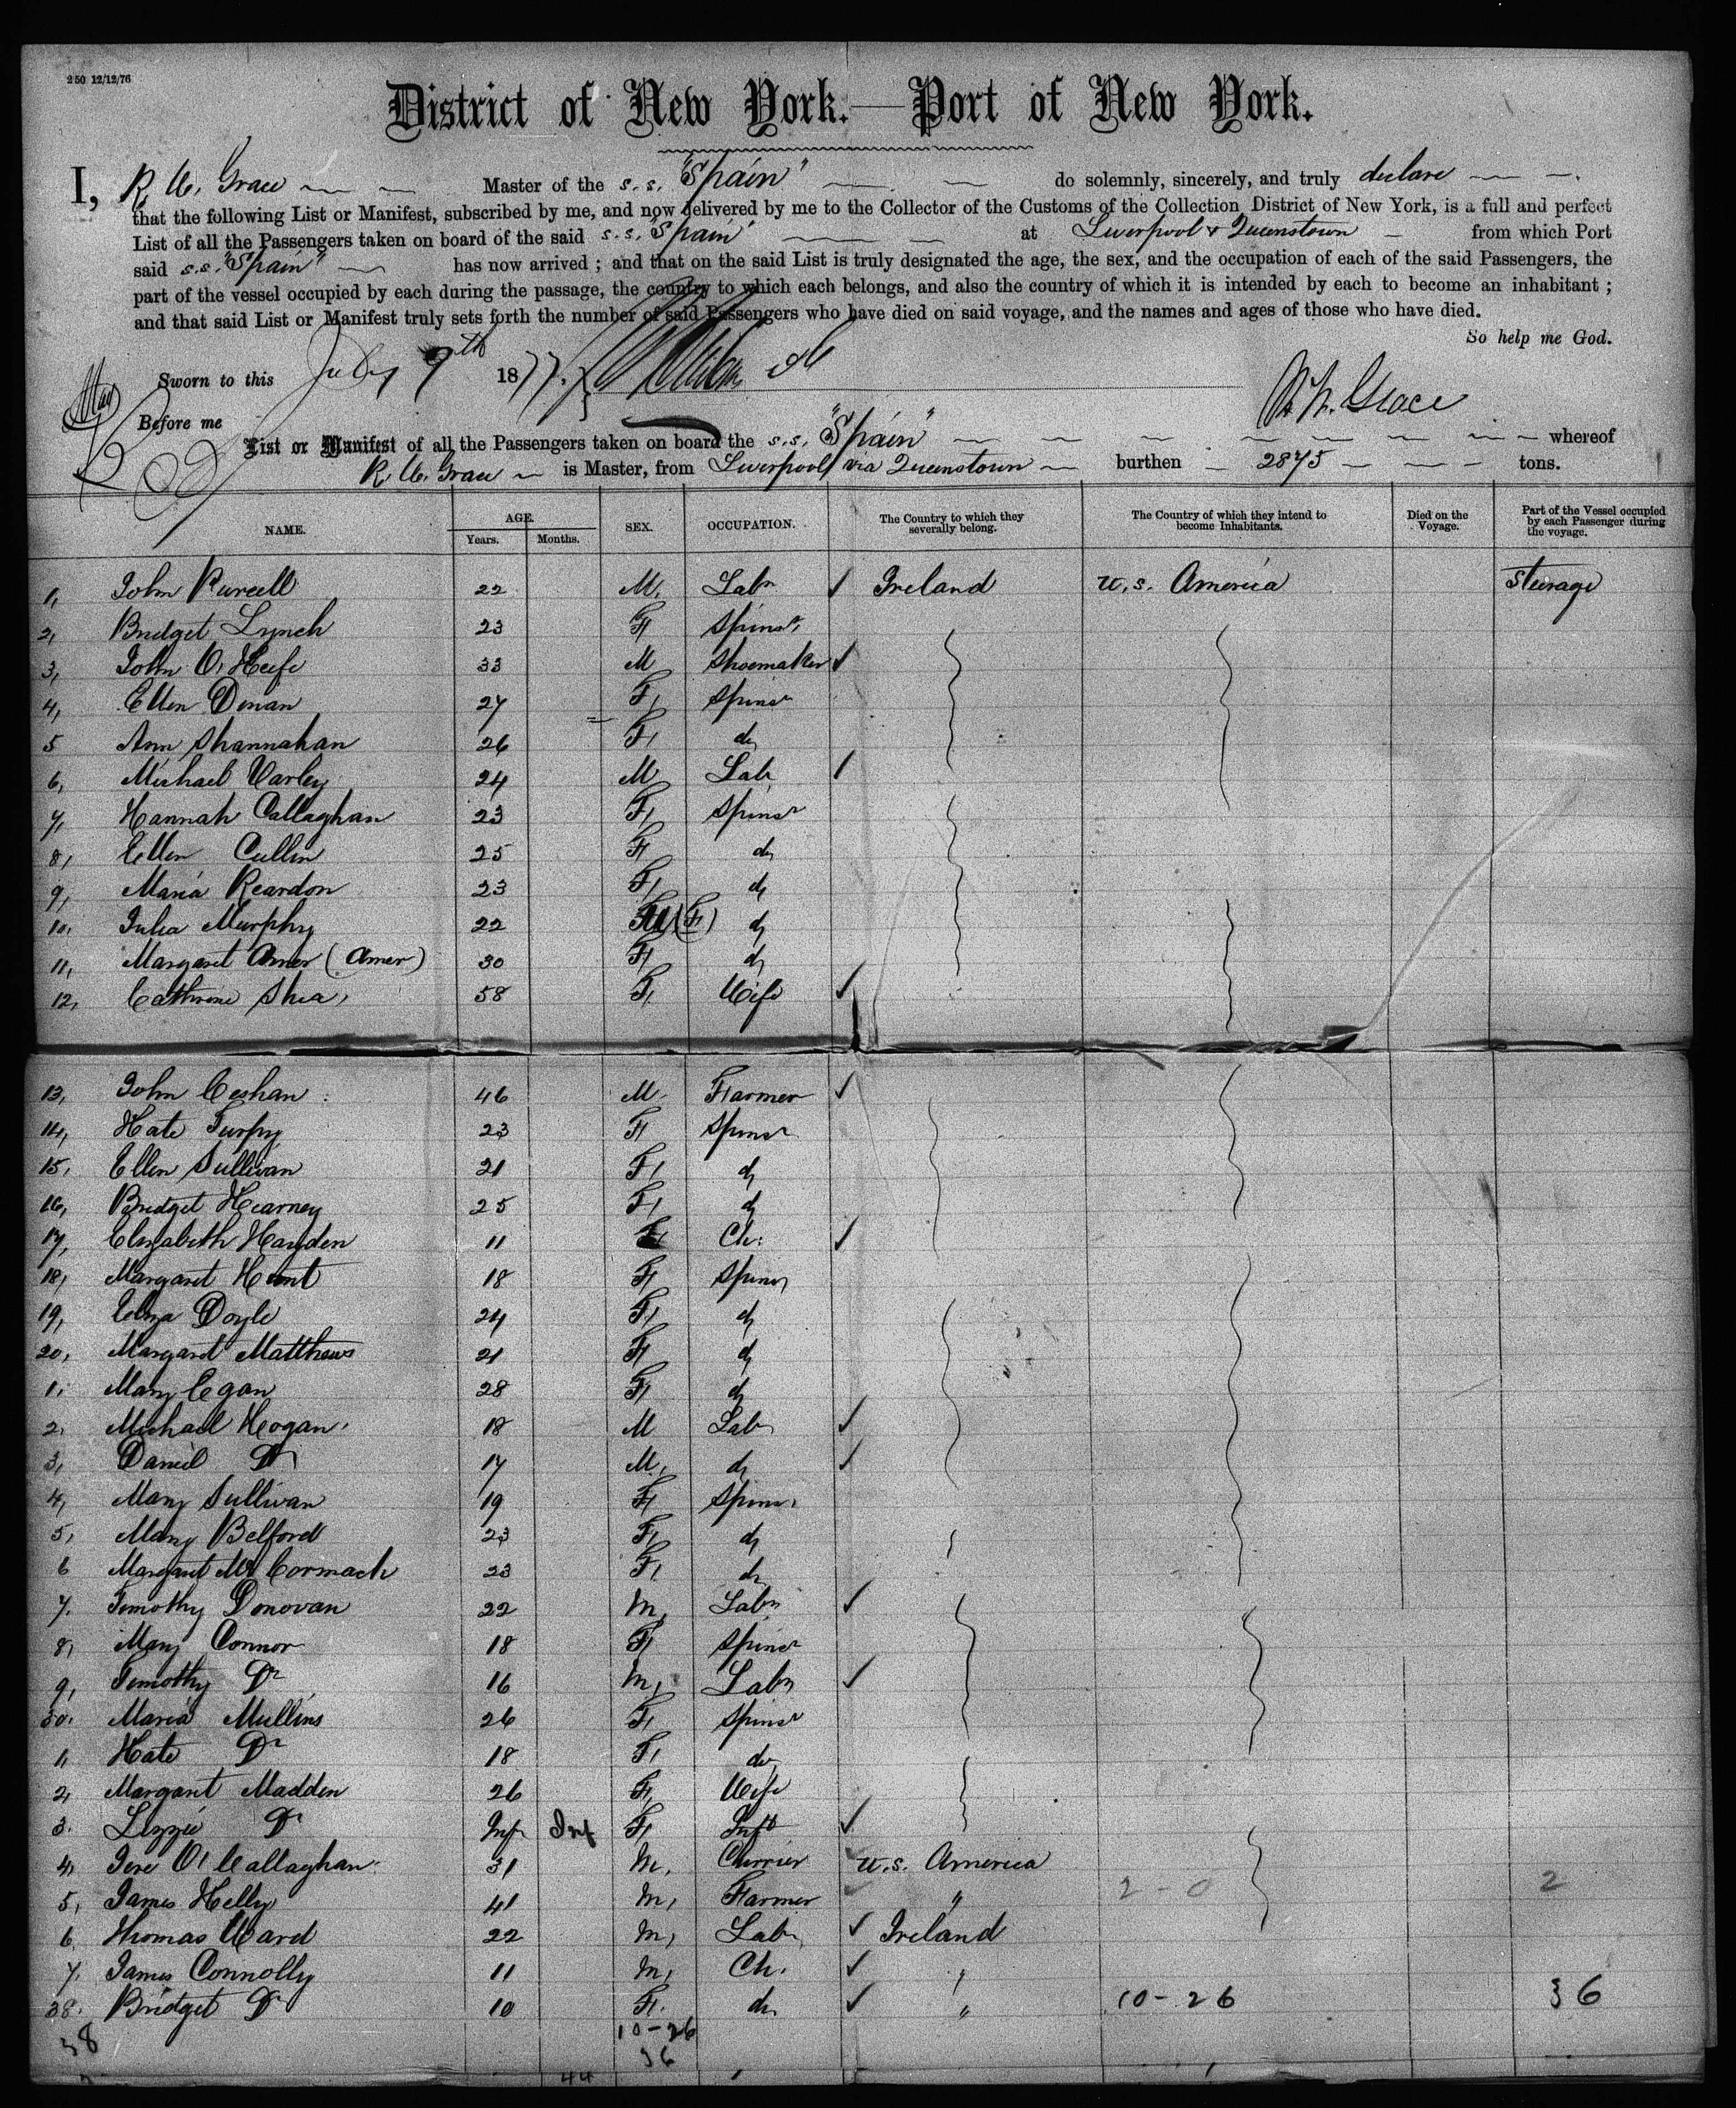 250 12/12/76
District of New York.—Port of New York.
I, R. W. Grace Master of the s.s. "Spain" do solemnly, sincerely, and truly declare
that the following List or Manifest, subscribed by me, and now delivered by me to the Collector of the Customs of the Collection District of New York, is a full and perfect
List of all the Passengers taken on board of the said s.s. Spain at Liverpool & Queenstown from which Port
said s.s. "Spain" has now arrived ; and that on the said List is truly designated the age, the sex, and the occupation of each of the said Passengers, the
part of the vessel occupied by each during the passage, the country to which each belongs, and also the country of which it is intended by each to become an inhabitant ;
and that said List or Manifest truly sets forth the number of said Passengers who have died on said voyage, and the names and ages of those who have died.
So help me God.
Sworn to this July 9th 1877.
R. W. Grace
Before me
List or Manifest of all the Passengers taken on board the s.s. "Spain" whereof
R. W. Grace is Master, from Liverpool via Queenstown burthen 2875 tons.
NAME. AGE. Years. Months. SEX. OCCUPATION. The Country to which they severally belong. The Country of which they intend to become Inhabitants. Died on the Voyage. Part of the Vessel occupied by each Passenger during the voyage.
1, John Purcell 22 M, Labr Ireland U.S. America Steerage
2, Bridget Lynch 23 F Spinsr,
3, John O'Keefe 33 M Shoemaker
4, Ellen Dinan 27 F, Spinsr
5 Ann Shannahan 26 F, do
6, Michael Varley 24 M Labr
7, Hannah Callaghan 23 F, Spinsr
8, Ellen Cullin 25 F do
9, Maria Reardon 23 F, do
10. Julia Murphy 22 (F) do
11, Margaret Amer (Amer) 30 F do
12, Cathrine Shea, 58 F, Wife
13, John Ceshan 46 M. Farmer
14, Kate Turpy 23 F Spinsr
15, Ellen Sullivan 21 F, do
16, Bridget Kearney 25 F, do
17, Elizabeth Hayden 11 F Ch:
18, Margaret Hunt 18 F, Spinsr
19, Eliza Doyle 24 F, do
20, Margaret Matthews 21 F, do
1, Mary Egan 28 F, do
2, Michael Hogan 18 M Labr
3, Daniel Do 17 M, do
4, Mary Sullivan 19 F, Spinsr
5, Mary Belford 23 F, do
6 Margaret McCormack 23 F, do
7. Timothy Donovan 22 M, Labr
8, Mary Connor 18 F, Spinsr
9, Timothy Do 16 M, Labr
30. Maria Mullins 26 F, Spinsr
1, Kate Do 18 F, do
2, Margaret Madden 26 F, Wife
3. Lizzie Do Inf Inf F, Inft
4, Jere O'Callaghan 31 M, Currier U.S. America
5, James Kelly 41 M, Farmer " 2 - 0 2
6. Thomas Ward 22 M, Labr Ireland
7. James Connolly 11 M, Ch. "
38. Bridget Do 10 F. do " 10 - 26 36
38 10 - 26
36
44